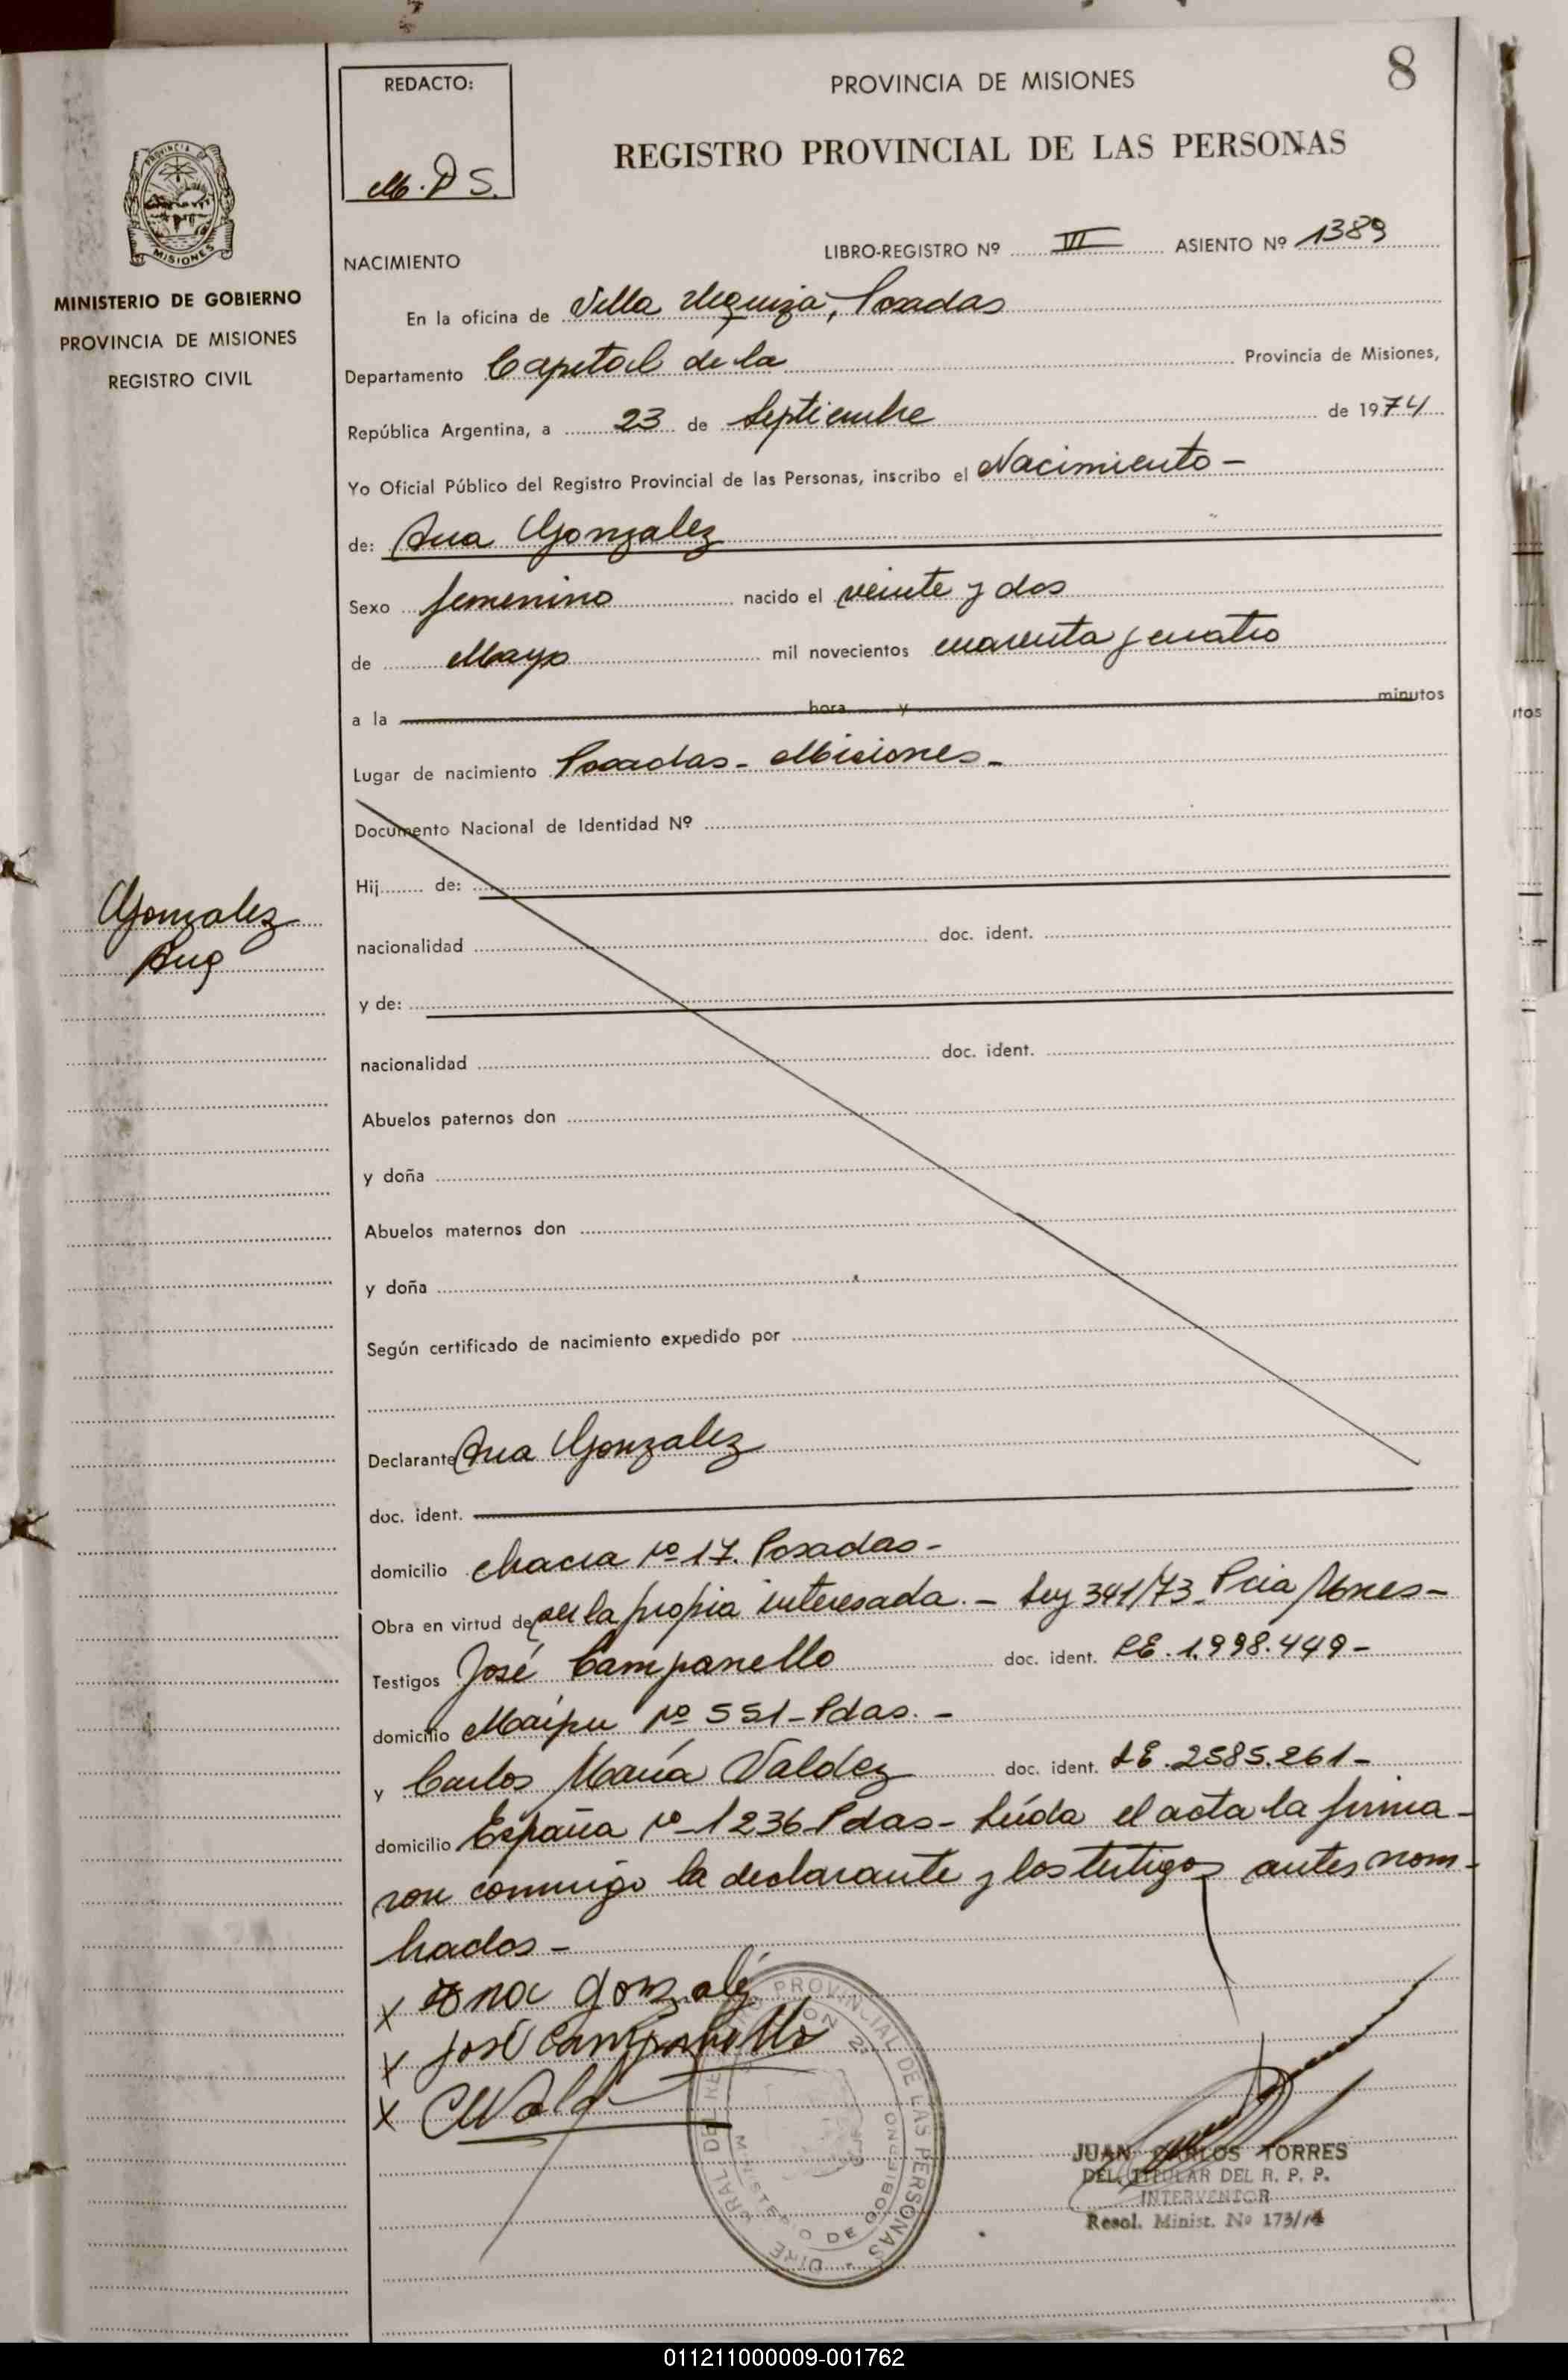 8
REDACTO:
M. D S.
PROVINCIA DE MISIONES
REGISTRO PROVINCIAL DE LAS PERSONAS
PROVINCIA DE
MISIONES
MINISTERIO DE GOBIERNO
PROVINCIA DE MISIONES
REGISTRO CIVIL
Gonzalez
Ana
NACIMIENTO
LIBRO-REGISTRO Nº III ASIENTO Nº 1389
En la oficina de Villa Urquiza, Posadas
Departamento Capital de la Provincia de Misiones,
República Argentina, a 23 de Septiembre de 1974
Yo Oficial Público del Registro Provincial de las Personas, inscribo el Nacimiento -
de: Ana Gonzalez
Sexo femenino nacido el veinte y dos
de Mayo mil novecientos cuarenta y cuatro
a la hora y minutos
Lugar de nacimiento Posadas - Misiones -
Documento Nacional de Identidad Nº
Hij de:
nacionalidad doc. ident.
y de:
nacionalidad doc. ident.
Abuelos paternos don
y doña
Abuelos maternos don
y doña
Según certificado de nacimiento expedido por
Declarante Ana Gonzalez
doc. ident.
domicilio Chacra Nº 17. Posadas -
Obra en virtud de ser la propia interesada. - Ley 341/73 - Pcia Mnes -
Testigos José Campanello doc. ident. LE. 1.998.449 -
domicilio Maipu Nº 551 - Pdas. -
y Carlos María Valdez doc. ident. LE. 2585.261 -
domicilio España Nº 1236 Pdas - Leída el acta la firma-
ron conmigo la declarante y los testigos antes nom-
brados -
X Ana Gonzalez
X José Campanello
X
PROVINCIAL DE LAS PERSONAS
MINISTERIO DE GOBIERNO
JUAN CARLOS TORRES
DEL. TITULAR DEL R. P. P.
INTERVENTOR
Resol. Minist. Nº 173/74
011211000009-001762